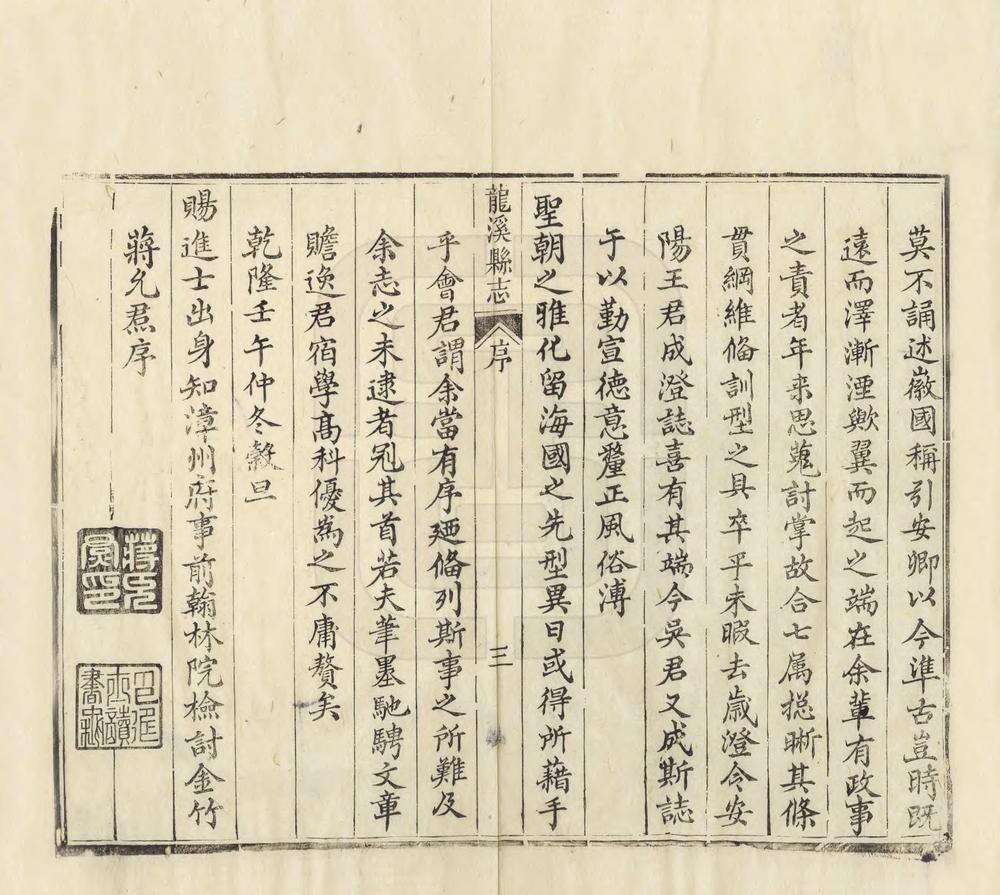 莫不誦述徽國稱引安卿以今準古豈時既
遠而澤漸湮歟翼而起之端在余輩有政事
之責者年来思蒐討掌故合七属捴晣其條
貫綱維俻訓型之具卒乎未暇去歳澄令安
陽王君成澄誌喜有其端今吳君又成斯誌
于以勤宣德意釐正風俗溥
聖朝之雅化留海國之先型異日或得所藉手
龍溪縣志 序 三
乎會君謂余當有序廼俻列斯事之所難及
余志之未逮者冠其首若夫筆墨馳騁文章
贍逸君宿學髙科優爲之不庸贅矣
乾隆壬午仲冬榖旦
賜進士出身知漳州府事前翰林院檢討金竹
蔣允焄序